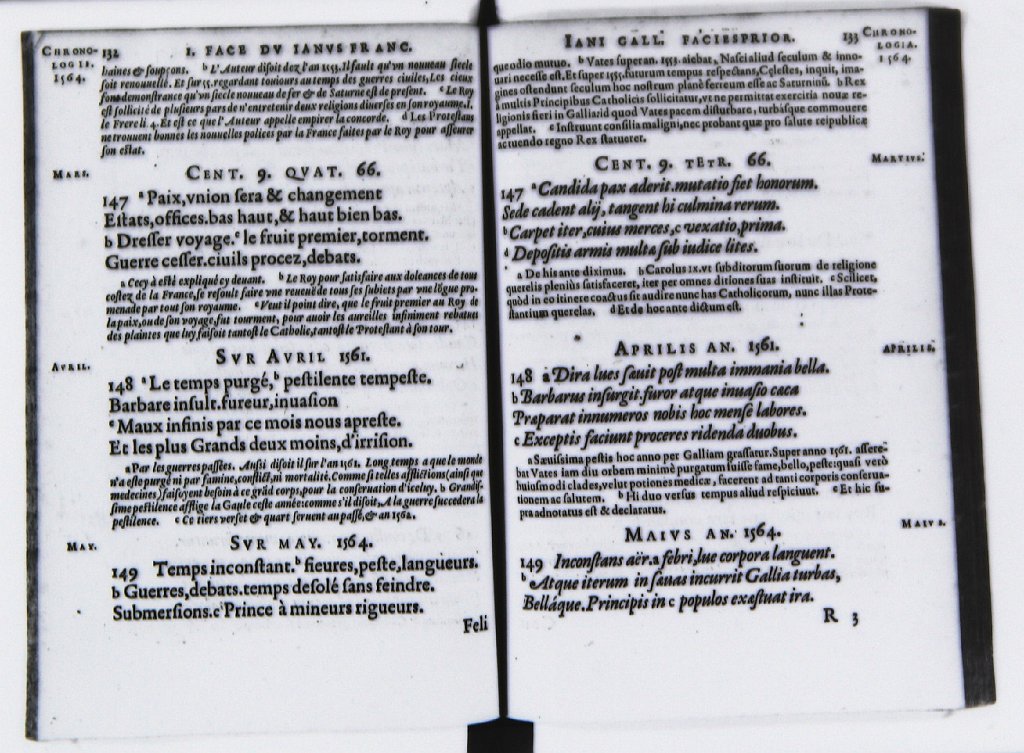 CHRONO-
LOGII.
1564.
132 I. FACE DV IANVS FRANC.
haines & soupçons. ᵇ L'Auteur disoit dez l'an 1553. Il fault qu'vn nouueau siecle
soit renouuellé. Et sur 55. regardant tousiours au temps des guerres ciuiles, Les cieux
font demonstrance qu'vn siecle nouueau de fer & de Saturne est de present. ᶜ Le Roy
est sollicité de plusieurs pars de n'entretenir deux religions diuerses en son royaume. I.
le Frere li 4. Et est ce que l'Auteur appelle empirer la concorde. ᵈ Les Protestans
ne trouuent bonnes les nouuelles polices par la France faites par le Roy pour asseurer
son estat.
MARS.
CENT. 9. QVAT. 66.
147 ᵃ Paix, vnion sera & changement
Estats, offices. bas haut, & haut bien bas.
b Dresser voyage. ᶜ le fruit premier, torment.
Guerre cesser. ciuils procez, debats.
a Cecy à esté expliqué cy deuant. ᵇ Le Roy pour satisfaire aux doleances de tous
costez de la France, se resoult faire vne reueuë de tous ses subiets par vne lõgue pro-
menade par tout son royaume. ᶜ Veut il point dire, que le fruit premier au Roy de
la paix, ou de son voyage, fut tourment, pour auoir les aureilles infiniment rebatus
des plaintes que luy faisoit tantost le Catholic, tantost le Protestant à son tour.
AVRIL.
SVR AVRIL 1561.
148 ᵃ Le temps purgé, ᵇ pestilente tempeste.
Barbare insult. fureur, inuasion
ᶜ Maux infinis par ce mois nous apreste.
Et les plus Grands deux moins, d'irrision.
a Par les guerres passées. Ausi disoit il sur l'an 1561. Long temps a que le monde
n'a esté purgé ni par famine, conflict, ni mortalité. Comme si telles afflictions (ainsi que
medecines) faisoyent besoin à ce grãd corps, pour la conseruation d'iceluy. b Grandis-
sime pestilence afflige la Gaule ceste année: comme s'il disoit, A la guerre succedera la
pestilence. ᶜ Ce tiers verset & quart seruent au passé, & an 1562.
MAY.
SVR MAY. 1564.
149 Temps inconstant. ᵇ fieures, peste, langueurs.
b Guerres, debats. temps desolé sans feindre.
Submersions. c Prince à mineurs rigueurs.
Feli
IANI GALL. FACIES PRIOR. 133
CHRONO-
LOGIA.
1564.
que odio mutuo. ᵇ Vates super an. 1553. aiebat, Nasci aliud seculum & inno-
uari necesse est. Et super 1555. futurum tempus respectans, Celestes, inquit, ima-
gines ostendunt seculum hoc nostrum planè ferreum esse ac Saturninũ. b Rex
à multis Principibus Catholicis sollicitatur, vt ne permittat exercitia nouæ re-
ligionis fieri in Gallia: id quod Vates pacem disturbare, turbisque commouere
appellat. ᶜ Instruunt consilia maligni, nec probant quæ pro salute reipublicæ
ac tuendo regno Rex statueret.
MARTIVS.
CENT. 9. TETR. 66.
147 ᵃ Candida pax aderit. mutatio fiet honorum.
Sede cadent alij, tangent hi culmina rerum.
ᵇ Carpet iter, cuius merces, c vexatio, prima.
ᵈ Depositis armis multa sub iudice lites.
a De his ante diximus. b Carolus IX. vt subditorum suorum de religione
querelis pleniùs satisfaceret, iter per omnes ditiones suas instituit. ᶜ Scilicet,
quòd in eo itinere coactus sit audire nunc has Catholicorum, nunc illas Prote-
stantium querelas. d Et de hoc ante dictum est.
APRILIS.
APRILIS AN. 1561.
148 a Dira lues sæuit post multa immania bella.
b Barbarus insurgit. furor atque inuasio cæca
Præparat innumeros nobis hoc mense labores.
c Exceptis faciunt proceres ridenda duobus.
a Sæuissima pestis hoc anno per Galliam grassatur. Super anno 1561. assere-
bat Vates iam diu orbem minimè purgatum fuisse fame, bello, peste: quasi verò
huiusmodi clades, velut potiones medicæ, facerent ad tanti corporis conserua-
tionem ac salutem. ᵇ Hi duo versus tempus aliud respiciunt. ᶜ Et hic su-
pra adnotatus est & declaratus.
MAIVS.
MAIVS AN. 1564.
149 Inconstans aër. a febri, lue corpora languent.
ᵇ Atque iterum in sæuas incurrit Gallia turbas,
Belláque. Principis in c populos exæstuat ira.
R 3